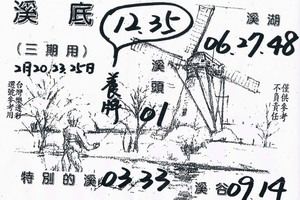 溪底
(三期用)
2月20.23.25日
12.35
養牌
溪湖
06.27.48
溪頭
01
台灣樂透彩
選號參考用
僅供參考
不負責任
特別的溪
03.33
溪谷
09.14